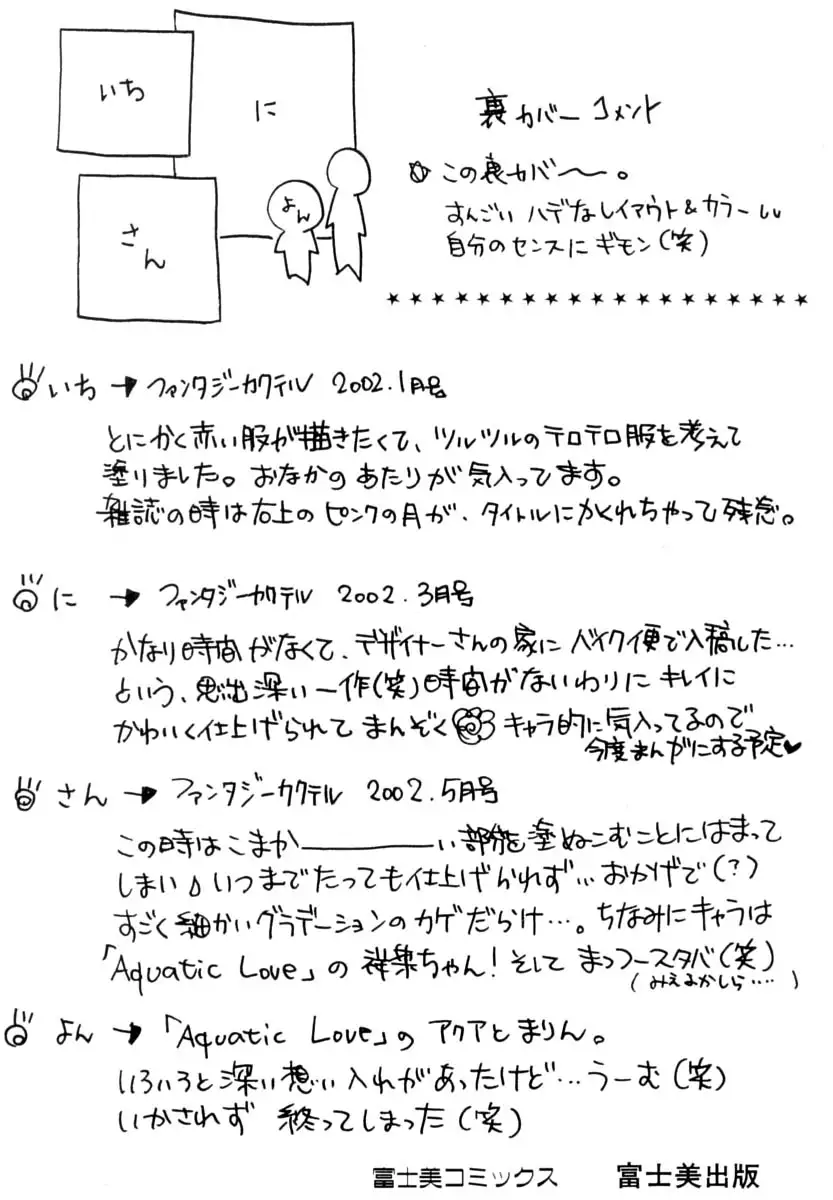 いち
に
さん
よん
裏カバーコメント
この裏カバ〜。
すんごいハデなレイアウト&カラーしい
自分のセンスにギモン(笑)
★★★★★★★★★★★★★★★★★★★
いち→ファンタジーカクテル 2002.1月号
とにかく赤い服が描きたくて、ツルツルのテロテロ服を考えて
塗りました。おなかのあたりが気入ってます。
雑誌の時は右上のピンクの月が、タイトルにかくれちゃって残念。
に→ファンタジーカクテル 2002.3月号
かなり時間がなくて、デザイナーさんの家にバイク便で入稿した…
という、思出深い一作(笑)時間がないわりにキレイに
かわいく仕上げられてまんぞく キャラ的に気入ってるので
今度まんがにする予定♥
さん→ファンタジーカクテル 2002.5月号
この時はこまか―――い部分を塗ぬこむことにはまって
しまい♪いつまでたっても仕上げられず…おかげで(?)
すごく細かいグラデーションのカゲだらけ…。ちなみにキャラは
「Aquatic Love」の ちゃん!そして まっフースタバ(笑)
(みえるかしら‥‥)
よん→「Aquatic Love」のアクアとまりん。
いろいろと深い想い入れがあったけど…うーむ(笑)
いかされず 終ってしまった(笑)
富士美コミックス 富士美出版